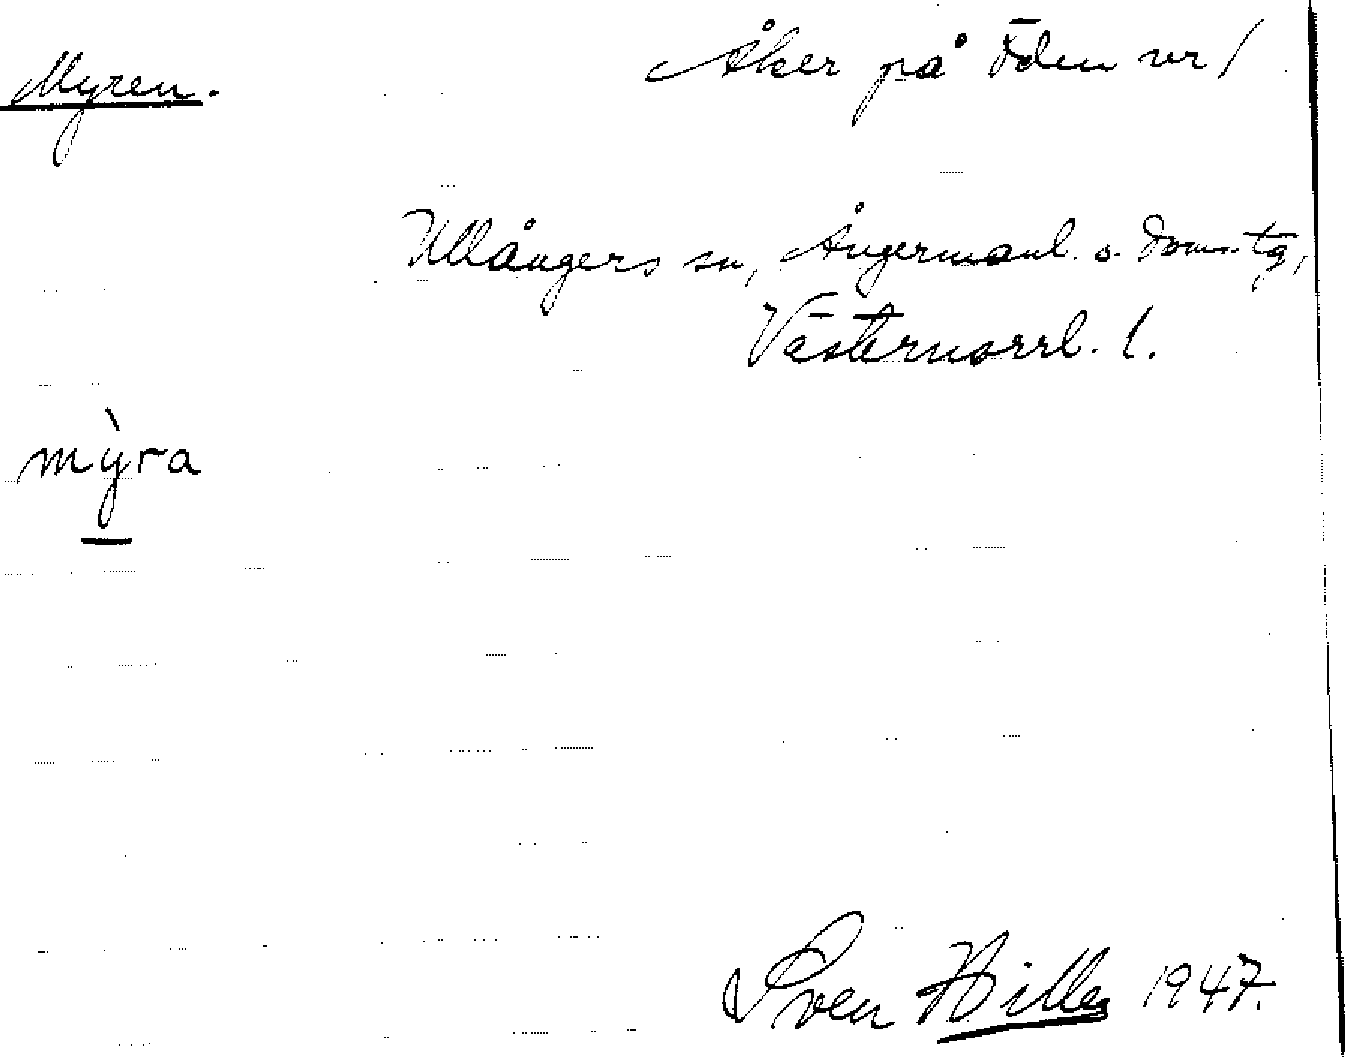 Myren.
Åker på Öden nr 1
Ullångers sn, Ångermanl. s. doms. tg,
Västernorrl. l.
mỳra
Sven Hilles 1947.